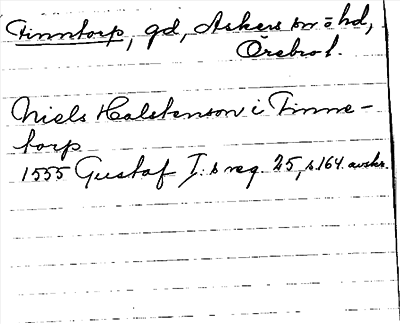 Finntorp, gd, Askers sn o hd,
Örebro l.
Niels Halstenson i Finne-
torp
1555 Gustaf I:s reg. 25, s. 164. avskr.